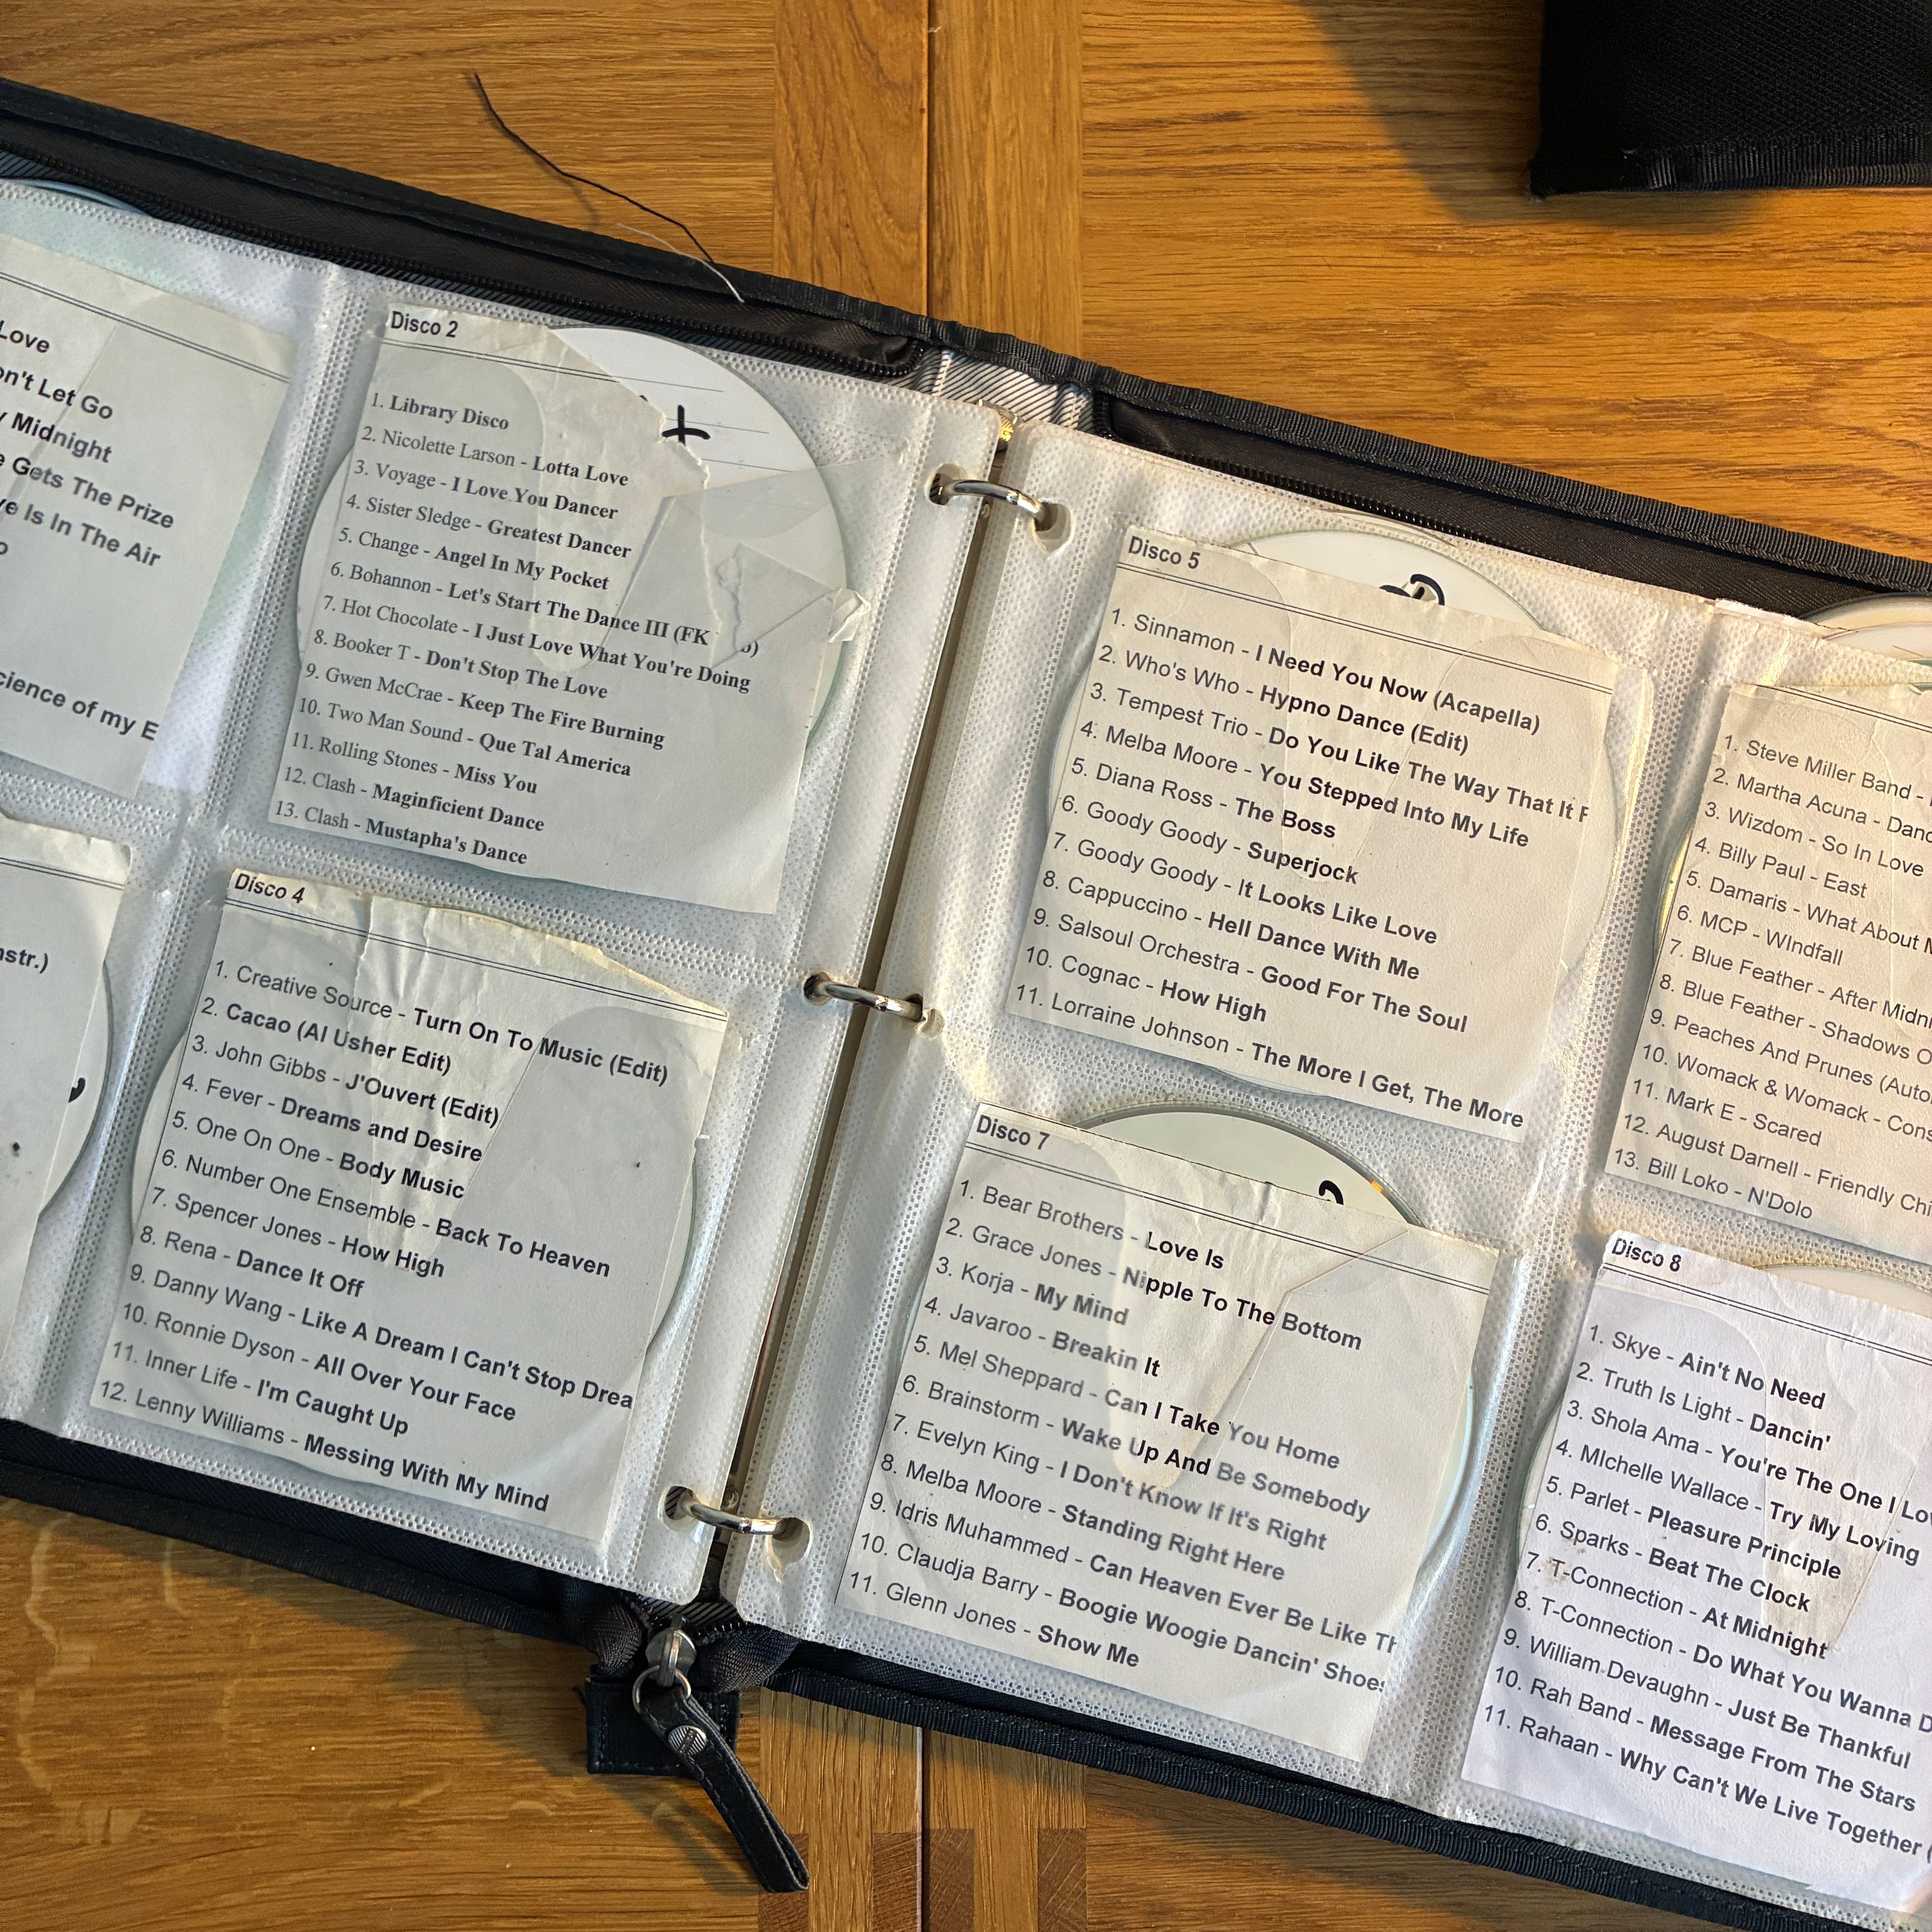 Love
on't Let Go
y Midnight
e Gets The Prize
ve Is In The Air
o
cience of my E
nstr.)
Disco 2
1. Library Disco
2. Nicolette Larson - Lotta Love
3. Voyage - I Love You Dancer
4. Sister Sledge - Greatest Dancer
5. Change - Angel In My Pocket
6. Bohannon - Let's Start The Dance III (FK
7. Hot Chocolate - I Just Love What You're Doing
8. Booker T - Don't Stop The Love
9. Gwen McCrae - Keep The Fire Burning
10. Two Man Sound - Que Tal America
11. Rolling Stones - Miss You
12. Clash - Maginficient Dance
13. Clash - Mustapha's Dance
Disco 4
1. Creative Source - Turn On To Music (Edit)
2. Cacao (Al Usher Edit)
3. John Gibbs - J'Ouvert (Edit)
4. Fever - Dreams and Desire
5. One On One - Body Music
6. Number One Ensemble - Back To Heaven
7. Spencer Jones - How High
8. Rena - Dance It Off
9. Danny Wang - Like A Dream I Can't Stop Drea
10. Ronnie Dyson - All Over Your Face
11. Inner Life - I'm Caught Up
12. Lenny Williams - Messing With My Mind
Disco 5
1. Sinnamon - I Need You Now (Acapella)
2. Who's Who - Hypno Dance (Edit)
3. Tempest Trio - Do You Like The Way That It F
4. Melba Moore - You Stepped Into My Life
5. Diana Ross - The Boss
6. Goody Goody - Superjock
7. Goody Goody - It Looks Like Love
8. Cappuccino - Hell Dance With Me
9. Salsoul Orchestra - Good For The Soul
10. Cognac - How High
11. Lorraine Johnson - The More I Get, The More
1. Steve Miller Band -
2. Martha Acuna - Danc
3. Wizdom - So In Love
4. Billy Paul - East
5. Damaris - What About M
6. MCP - WIndfall
7. Blue Feather - After Midni
8. Blue Feather - Shadows O
9. Peaches And Prunes (Auto
10. Womack & Womack - Cons
11. Mark E - Scared
12. August Darnell - Friendly Chi
13. Bill Loko - N'Dolo
Disco 7
1. Bear Brothers - Love Is
2. Grace Jones - Nipple To The Bottom
3. Korja - My Mind
4. Javaroo - Breakin It
5. Mel Sheppard - Can I Take You Home
6. Brainstorm - Wake Up And Be Somebody
7. Evelyn King - I Don't Know If It's Right
8. Melba Moore - Standing Right Here
9. Idris Muhammed - Can Heaven Ever Be Like Th
10. Claudja Barry - Boogie Woogie Dancin' Shoes
11. Glenn Jones - Show Me
Disco 8
1. Skye - Ain't No Need
2. Truth Is Light - Dancin'
3. Shola Ama - You're The One I Lov
4. MIchelle Wallace - Try My Loving
5. Parlet - Pleasure Principle
6. Sparks - Beat The Clock
7. T-Connection - At Midnight
8. T-Connection - Do What You Wanna D
9. William Devaughn - Just Be Thankful
10. Rah Band - Message From The Stars
11. Rahaan - Why Can't We Live Together (